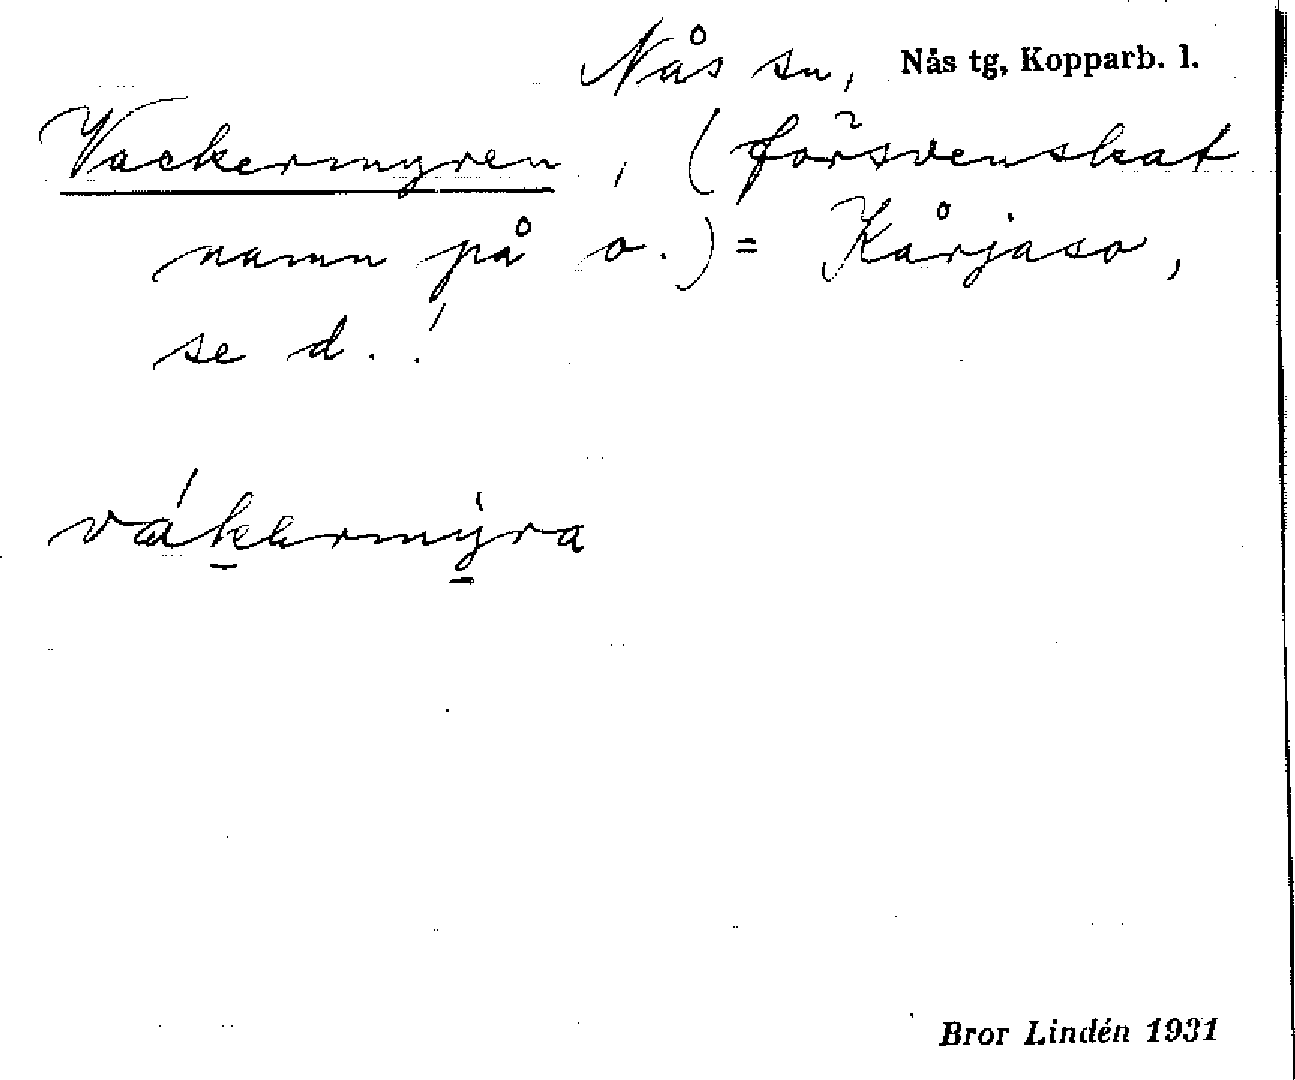 Nås sn, Nås tg, Kopparb. l.
Vackermyren, (försvenskat
namn på o.) = Kårjaso,
se d.!
vák̲ermy̲ra
Bror Lindén 1931